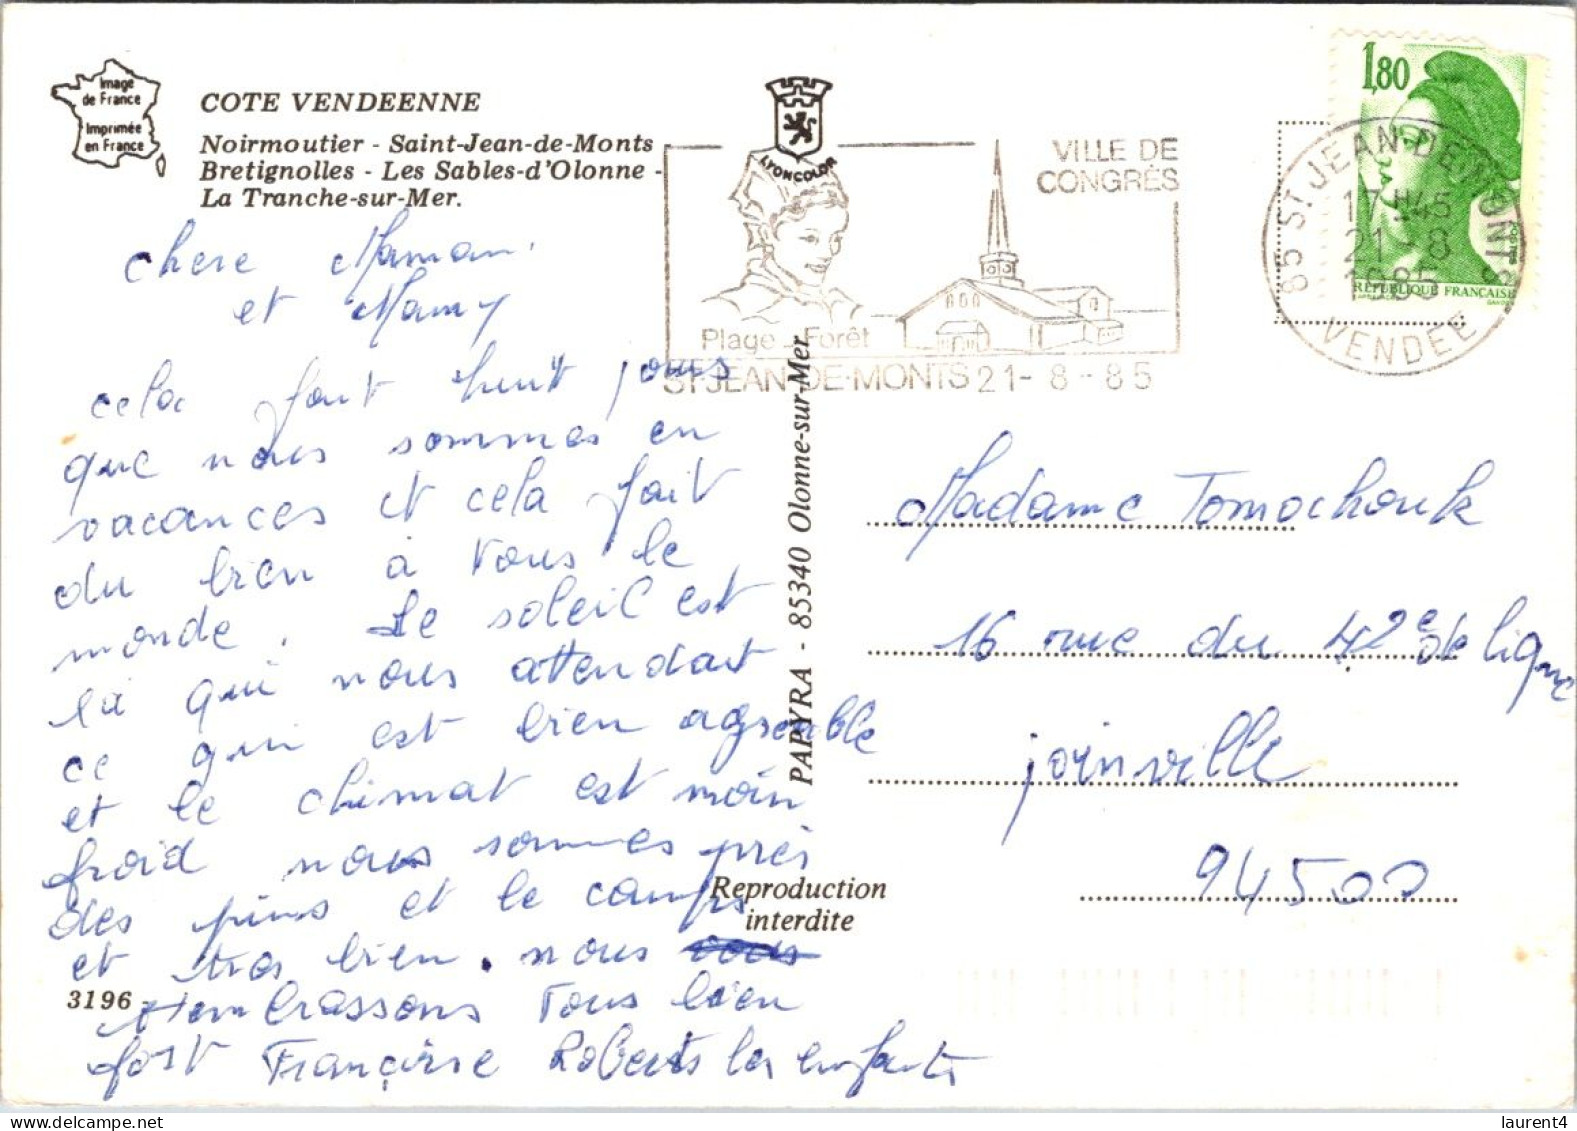 Image
de France
Imprimée
en France
COTE VENDEENNE
Noirmoutier - Saint-Jean-de-Monts
Bretignolles - Les Sables-d'Olonne -
La Tranche-sur-Mer.
chere Maman
et Mamy
cela fait huit jours
que nous sommes en
vacances et cela fait
du bien à tous le
monde. Le soleil est
là qui nous attendait
ce qui est bien agreable
et le chimat est moin
froid nous sommes près
des pins et le camps
et tres bien. nous
embrassons tous bien
fort Françoise Roberts les enfants
3196
LYONCOLOR
PAPYRA - 85340 Olonne-sur-Mer
Reproduction
interdite
VILLE DE
CONGRÈS
Plage - Forêt
ST JEAN-DE-MONTS 21 - 8 - 85
1,80
REPUBLIQUE FRANCAISE
85 ST JEAN DE MONTS
17 H45
21 - 8
1985
VENDEE
Madame Tomachouk
16 rue du 42e de ligne
joinville
94500
laurent4